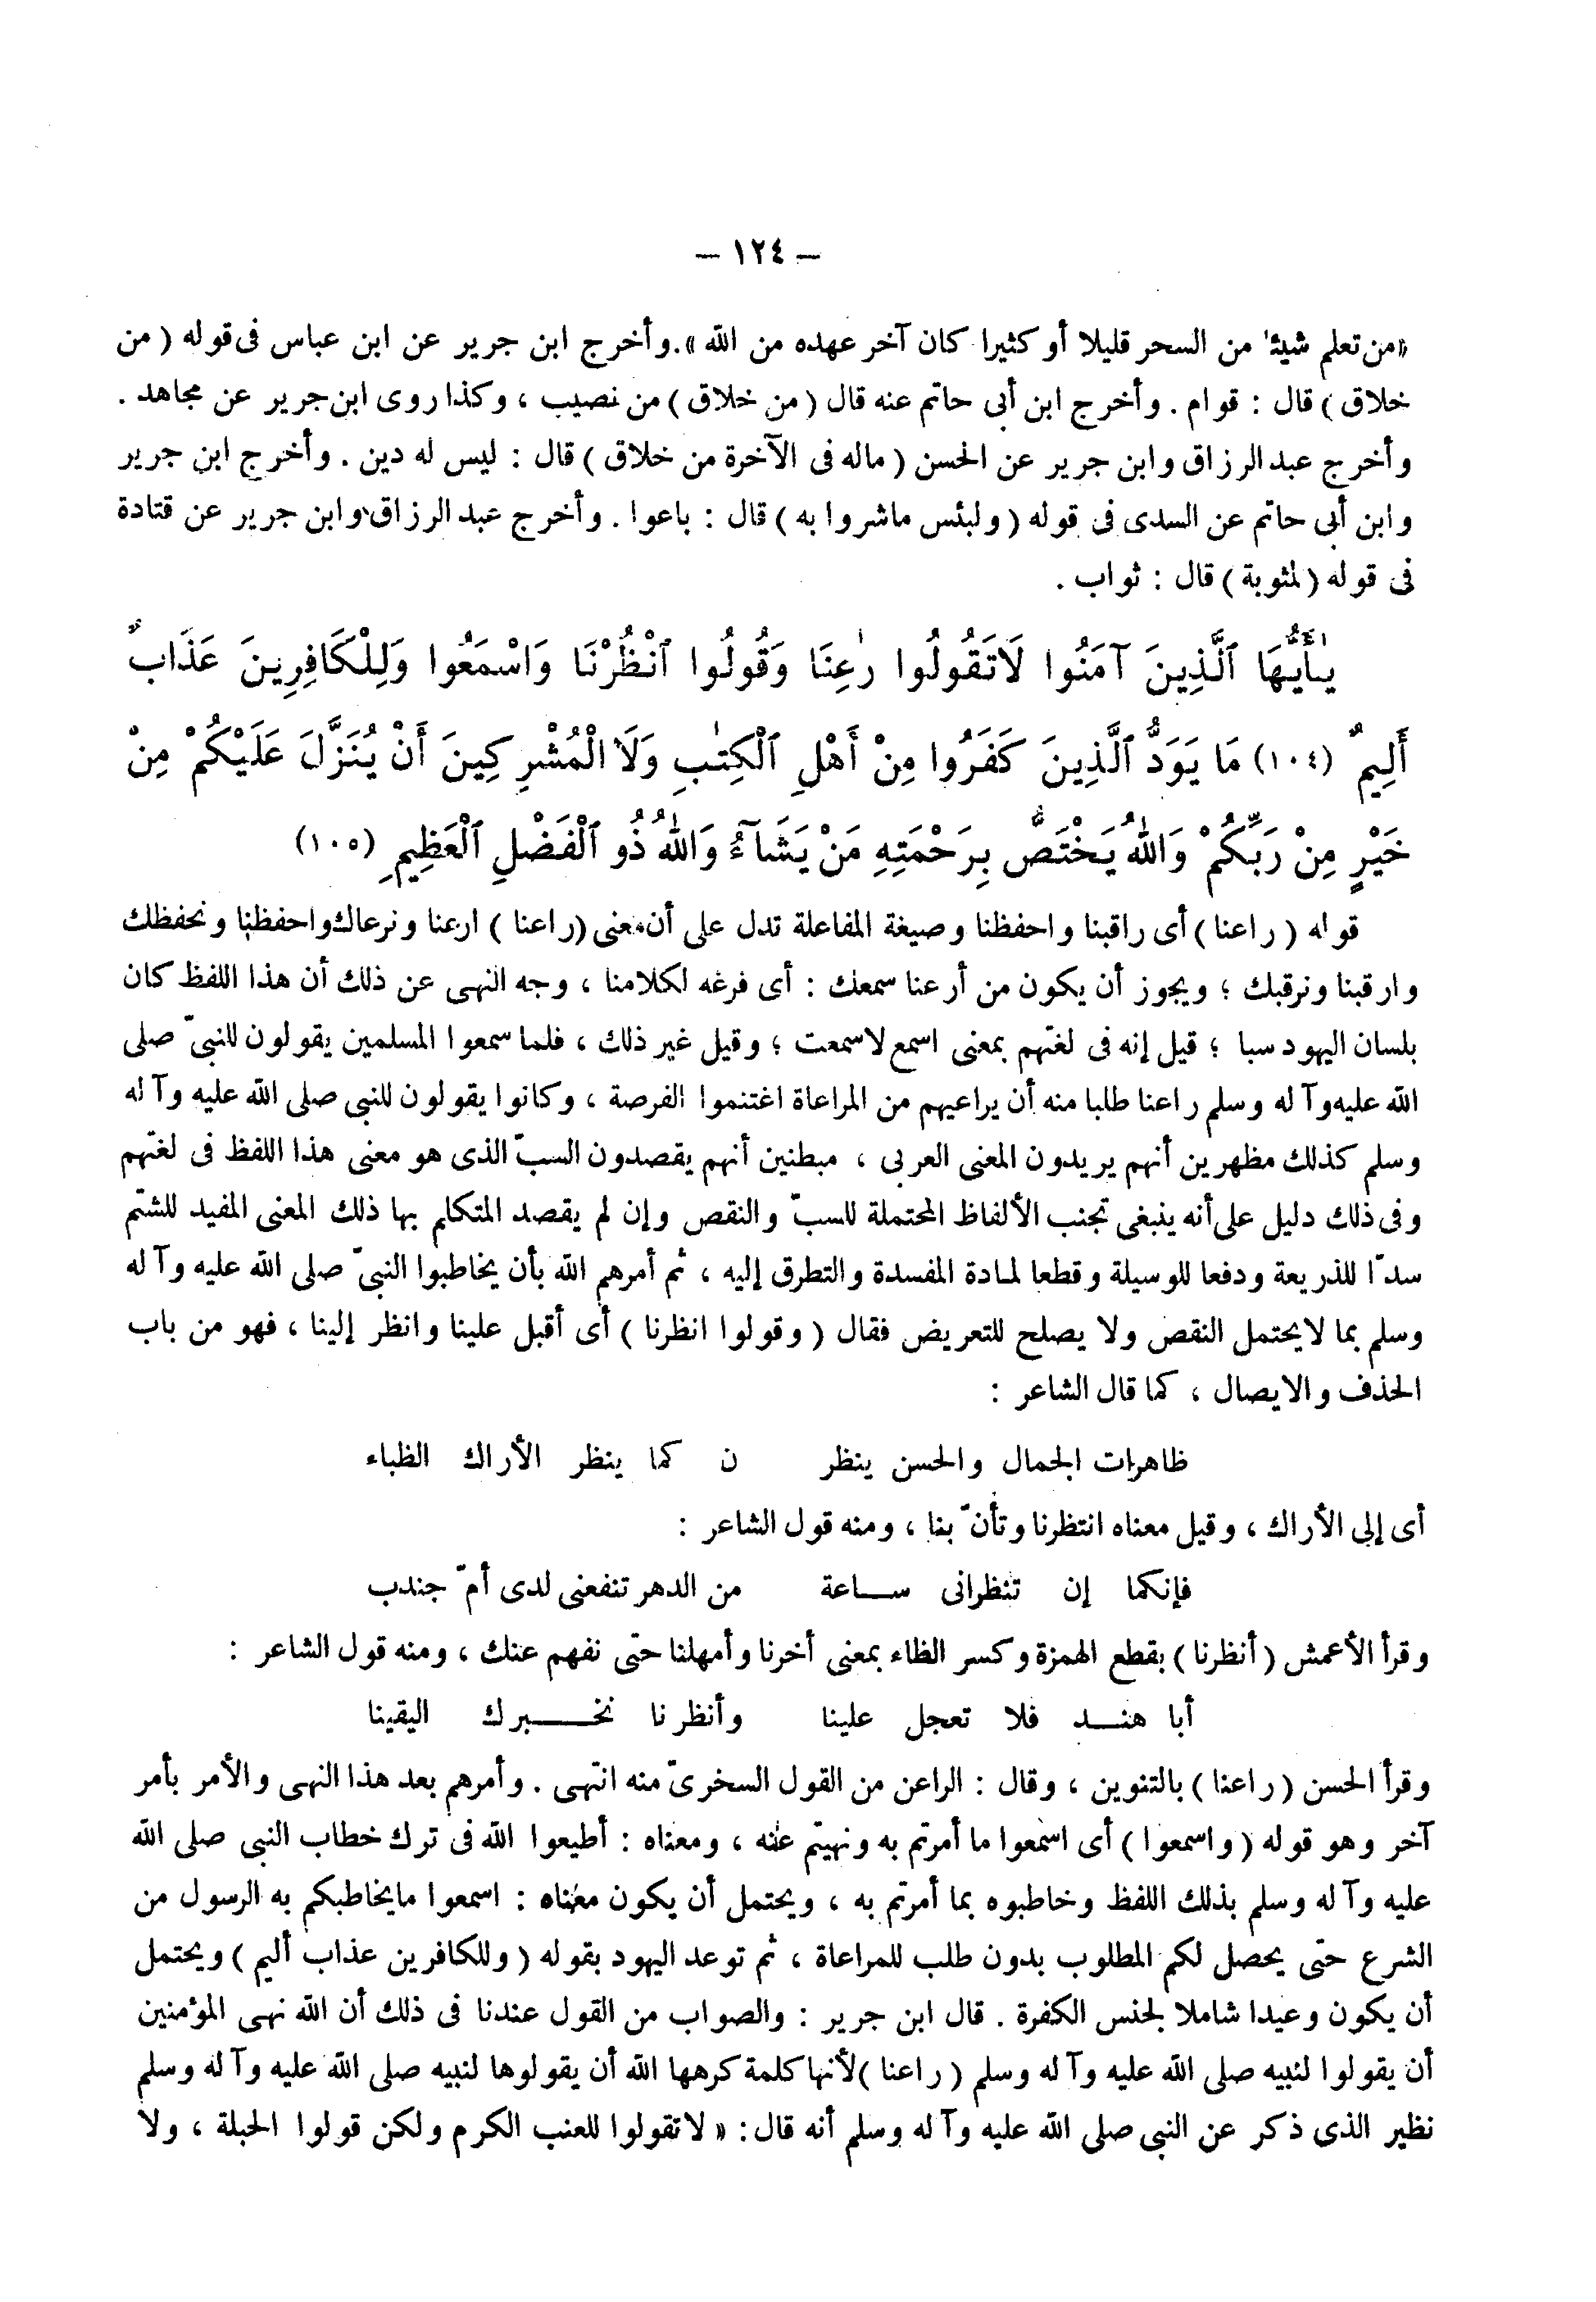 — ١٢٤ —
«من تعلم شيئا من السحر قليلا أو كثيرا كان آخر عهده من الله». وأخرج ابن جرير عن ابن عباس فى قوله ( من
خلاق ) قال : قوام . وأخرج ابن أبى حاتم عنه قال ( من خلاق ) من نصيب ، وكذا روى ابن جرير عن مجاهد .
وأخرج عبد الرزاق وابن جرير عن الحسن ( ماله فى الآخرة من خلاق ) قال : ليس له دين . وأخرج ابن جرير
وابن أبى حاتم عن السدى فى قوله ( ولبئس ماشروا به ) قال : باعوا . وأخرج عبد الرزاق وابن جرير عن قتادة
فى قوله ( لمثوبة ) قال : ثواب .
يٰأَيُّهَا ٱلَّذِينَ آمَنُوا لَاتَقُولُوا رٰعِنَا وَقُولُوا ٱنْظُرْنَا وَاسْمَعُوا وَلِلْكَافِرِينَ عَذَابٌ
أَلِيمٌ (١٠٤) مَا يَوَدُّ ٱلَّذِينَ كَفَرُوا مِنْ أَهْلِ ٱلْكِتٰبِ وَلَا الْمُشْرِكِينَ أَنْ يُنَزَّلَ عَلَيْكُمْ مِنْ
خَيْرٍ مِنْ رَبِّكُمْ وَاللّٰهُ يَخْتَصُّ بِرَحْمَتِهِ مَنْ يَشَآءُ وَاللّٰهُ ذُو ٱلْفَضْلِ ٱلْعَظِيمِ (١٠٥)
قوله ( راعنا ) أى راقبنا واحفظنا وصيغة المفاعلة تدل على أن معنى (راعنا ) ارعنا ونرعاك واحفظنا ونحفظك
وارقبنا ونرقبك ؛ ويجوز أن يكون من أرعنا سمعك : أى فرغه لكلامنا ، وجه النهى عن ذلك أن هذا اللفظ كان
بلسان اليهود سبا ؛ قيل إنه فى لغتهم بمعنى اسمع لاسمعت ؛ وقيل غير ذلك ، فلما سمعوا المسلمين يقولون للنبىّ صلى
الله عليه وآله وسلم راعنا طلبا منه أن يراعيهم من المراعاة اغتنموا الفرصة ، وكانوا يقولون للنبى صلى الله عليه وآله
وسلم كذلك مظهرين أنهم يريدون المعنى العربى ، مبطنين أنهم يقصدون السبّ الذى هو معنى هذا اللفظ فى لغتهم
وفى ذلك دليل على أنه ينبغى تجنب الألفاظ المحتملة للسبّ والنقص وإن لم يقصد المتكلم بها ذلك المعنى المفيد للشتم
سدّا للذريعة ودفعا للوسيلة وقطعا لمادة المفسدة والتطرق إليه ، ثم أمرهم الله بأن يخاطبوا النبىّ صلى الله عليه وآله
وسلم بما لايحتمل النقص ولا يصلح للتعريض فقال ( وقولوا انظرنا ) أى أقبل علينا وانظر إلينا ، فهو من باب
الحذف والايصال ، كما قال الشاعر :
ظاهرات الجمال والحسن ينظر ن كما ينظر الأراك الظباء
أى إلى الأراك ، وقيل معناه انتظرنا وتأنّ بنا ، ومنه قول الشاعر :
فإنكما إن تنظرانى ساعة من الدهر تنفعنى لدى أمّ جندب
وقرأ الأعمش ( أنظرنا ) بقطع الهمزة وكسر الظاء بمعنى أخرنا وأمهلنا حتى نفهم عنك ، ومنه قول الشاعر :
أبا هند فلا تعجل علينا وأنظرنا نخبرك اليقينا
وقرأ الحسن ( راعنا ) بالتنوين ، وقال : الراعن من القول السخرىّ منه انتهى . وأمرهم بعد هذا النهى والأمر بأمر
آخر وهو قوله ( واسمعوا ) أى اسمعوا ما أمرتم به ونهيتم عنه ، ومعناه : أطيعوا الله فى ترك خطاب النبى صلى الله
عليه وآله وسلم بذلك اللفظ وخاطبوه بما أمرتم به ، ويحتمل أن يكون معناه : اسمعوا مايخاطبكم به الرسول من
الشرع حتى يحصل لكم المطلوب بدون طلب للمراعاة ، ثم توعد اليهود بقوله ( وللكافرين عذاب أليم ) ويحتمل
أن يكون وعيدا شاملا لجنس الكفرة . قال ابن جرير : والصواب من القول عندنا فى ذلك أن الله نهى المؤمنين
أن يقولوا لنبيه صلى الله عليه وآله وسلم ( راعنا ) لأنها كلمة كرهها الله أن يقولوها لنبيه صلى الله عليه وآله وسلم
نظير الذى ذكر عن النبى صلى الله عليه وآله وسلم أنه قال : « لاتقولوا للعنب الكرم ولكن قولوا الحبلة ، ولا